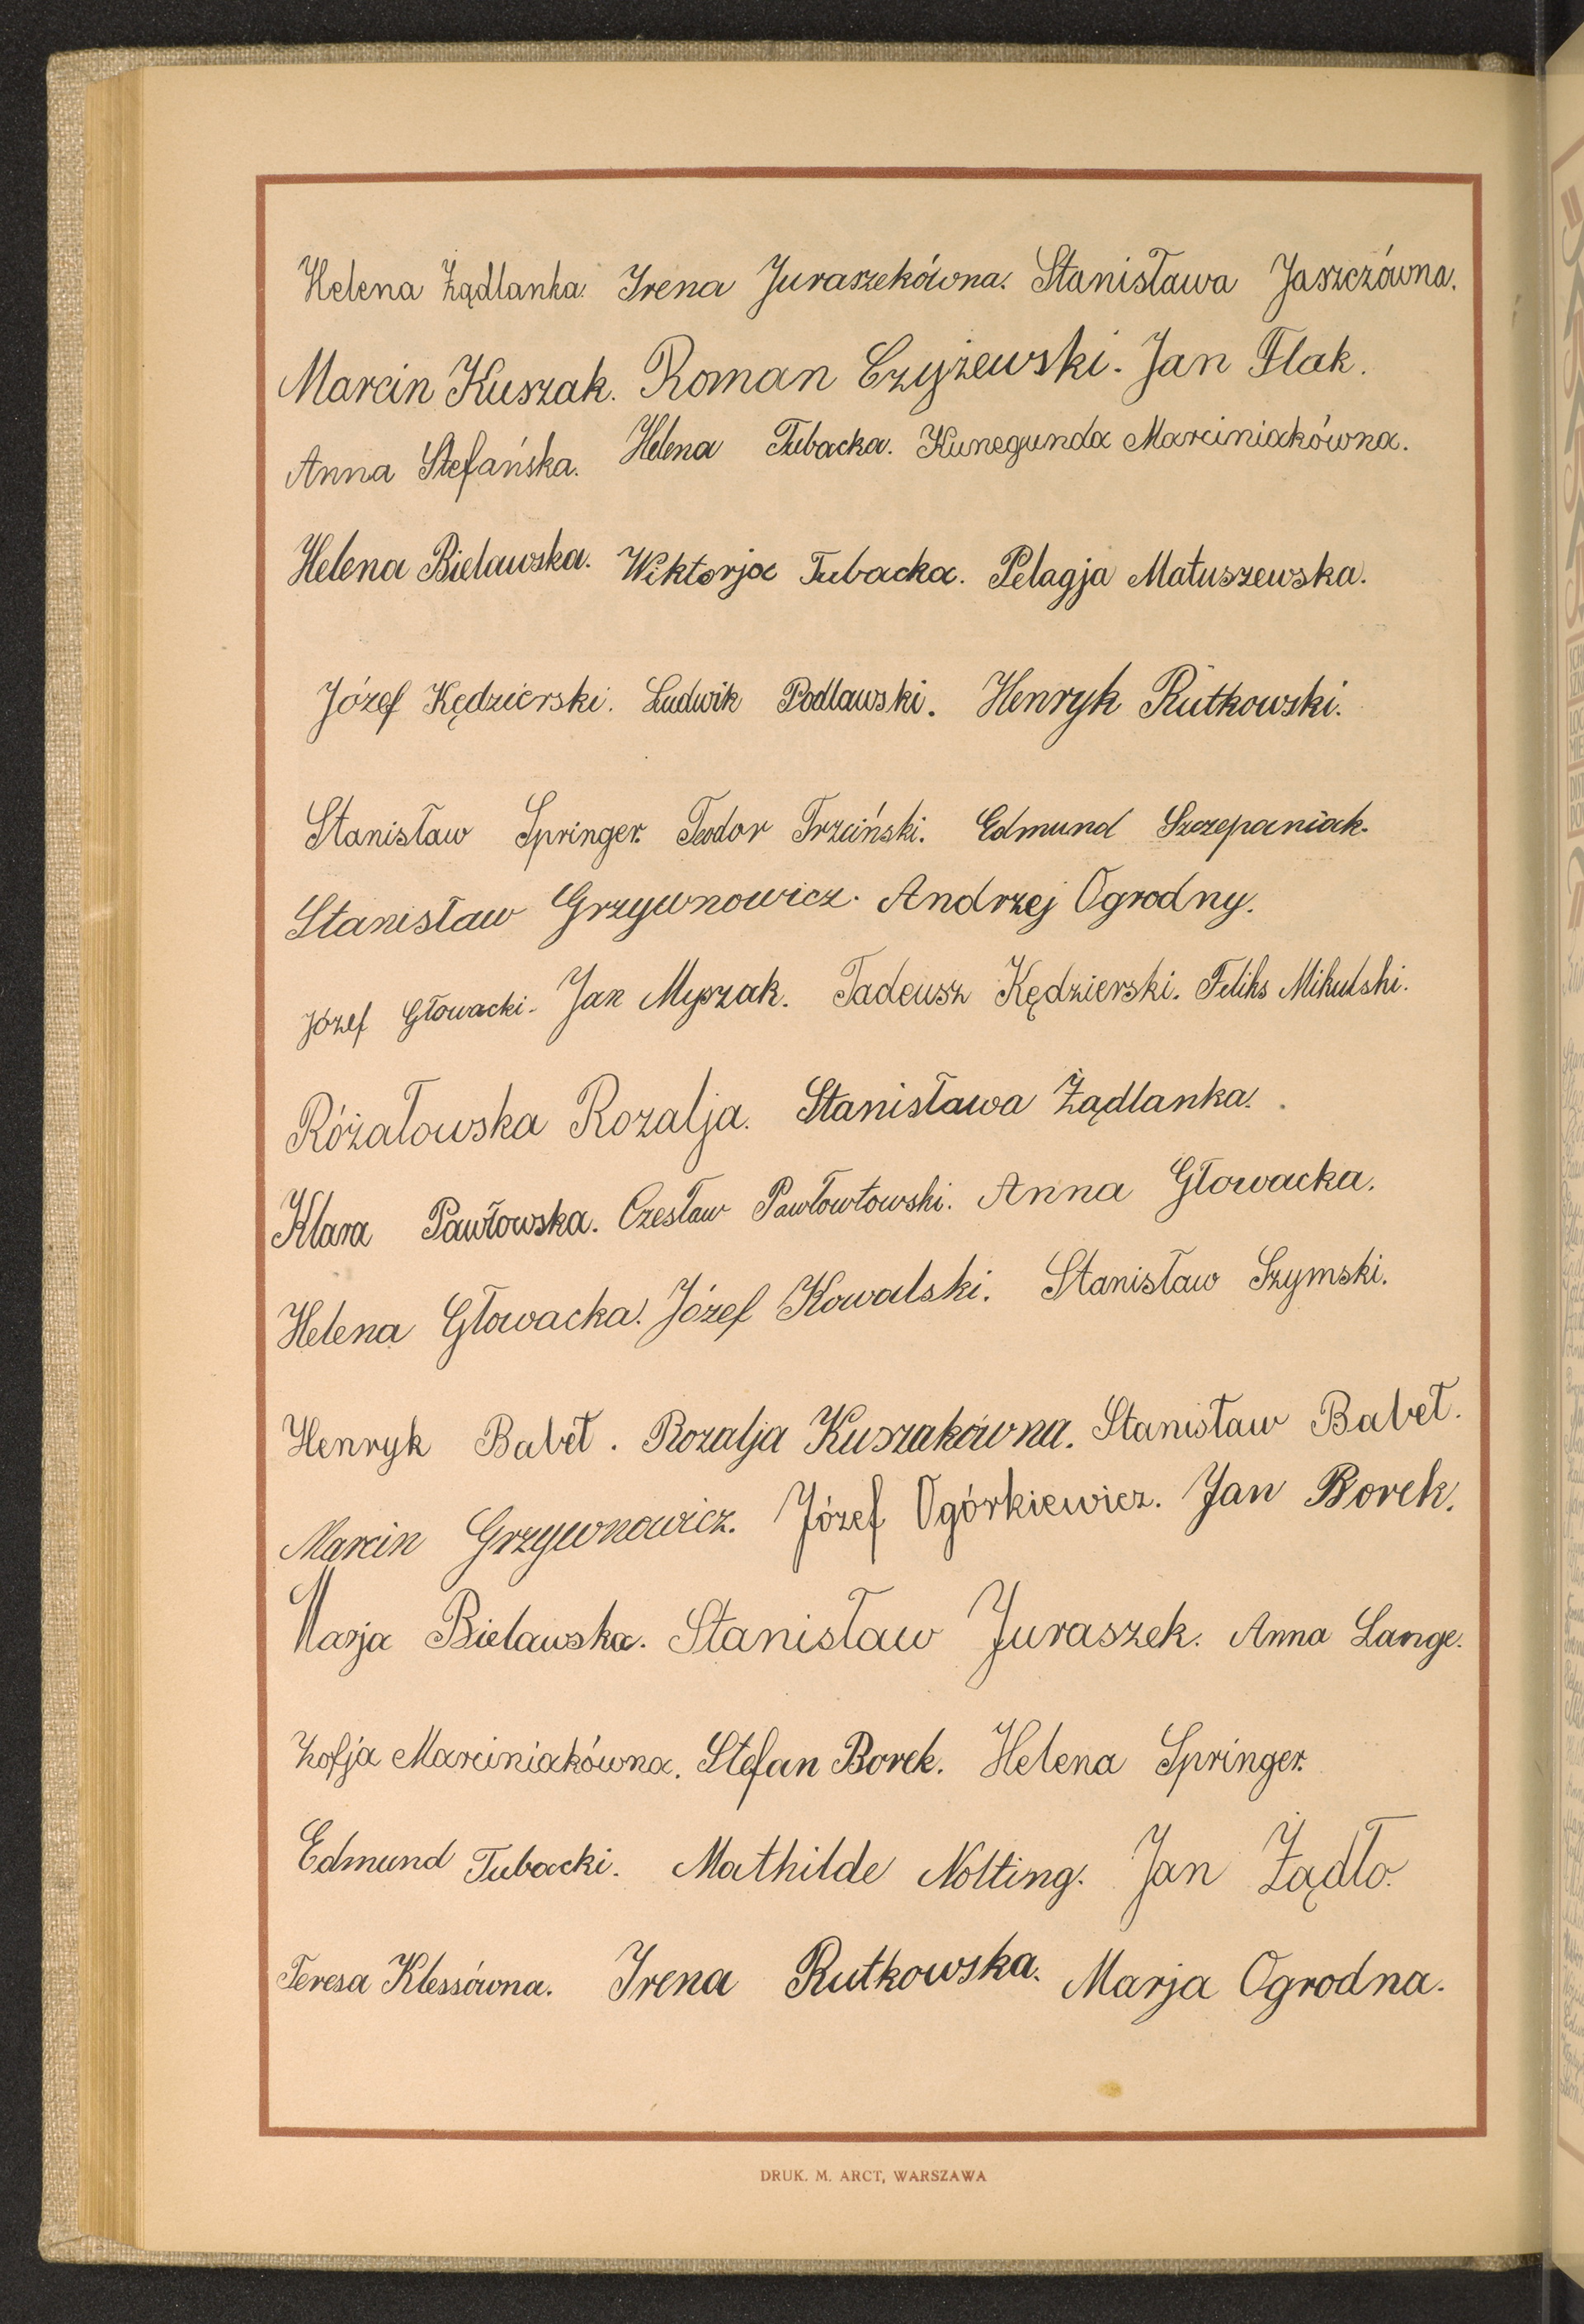 Helena Żądlanka. Irena Juraszekówna. Stanisława Jaszczówna.
Marcin Kuszak. Roman Czyżewski. Jan Flak.
Anna Stefańska. Helena Tubacka. Kunegunda Marciniakówna.
Helena Bielawska. Wiktorja Tubacka. Pelagja Matuszewska.
Józef Kędzierski. Ludwik Podlawski. Henryk Rutkowski.
Stanisław Springer. Teodor Trzciński. Edmund Szczepaniak.
Stanisław Grzywnowicz. Andrzej Ogrodny.
Józef Głowacki. Jan Myszak. Tadeusz Kędzierski. Feliks Mikulski.
Różałowska Rozalja. Stanisława Żądlanka.
Klara Pawłowska. Czesław Pawłowłowski. Anna Głowacka.
Helena Głowacka. Józef Kowalski. Stanisław Szymski.
Henryk Babeł. Rozalja Kuszakówna. Stanisław Babeł.
Marcin Grzywnowicz. Józef Ogórkiewicz. Jan Borek.
Marja Bielawska. Stanisław Juraszek. Anna Lange.
Zofja Marciniakówna. Stefan Borek. Helena Springer.
Edmund Tubacki. Mathilde Nolting. Jan Żądło.
Teresa Klessówna. Irena Rutkowska. Marja Ogrodna.
DRUK. M. ARCT, WARSZAWA